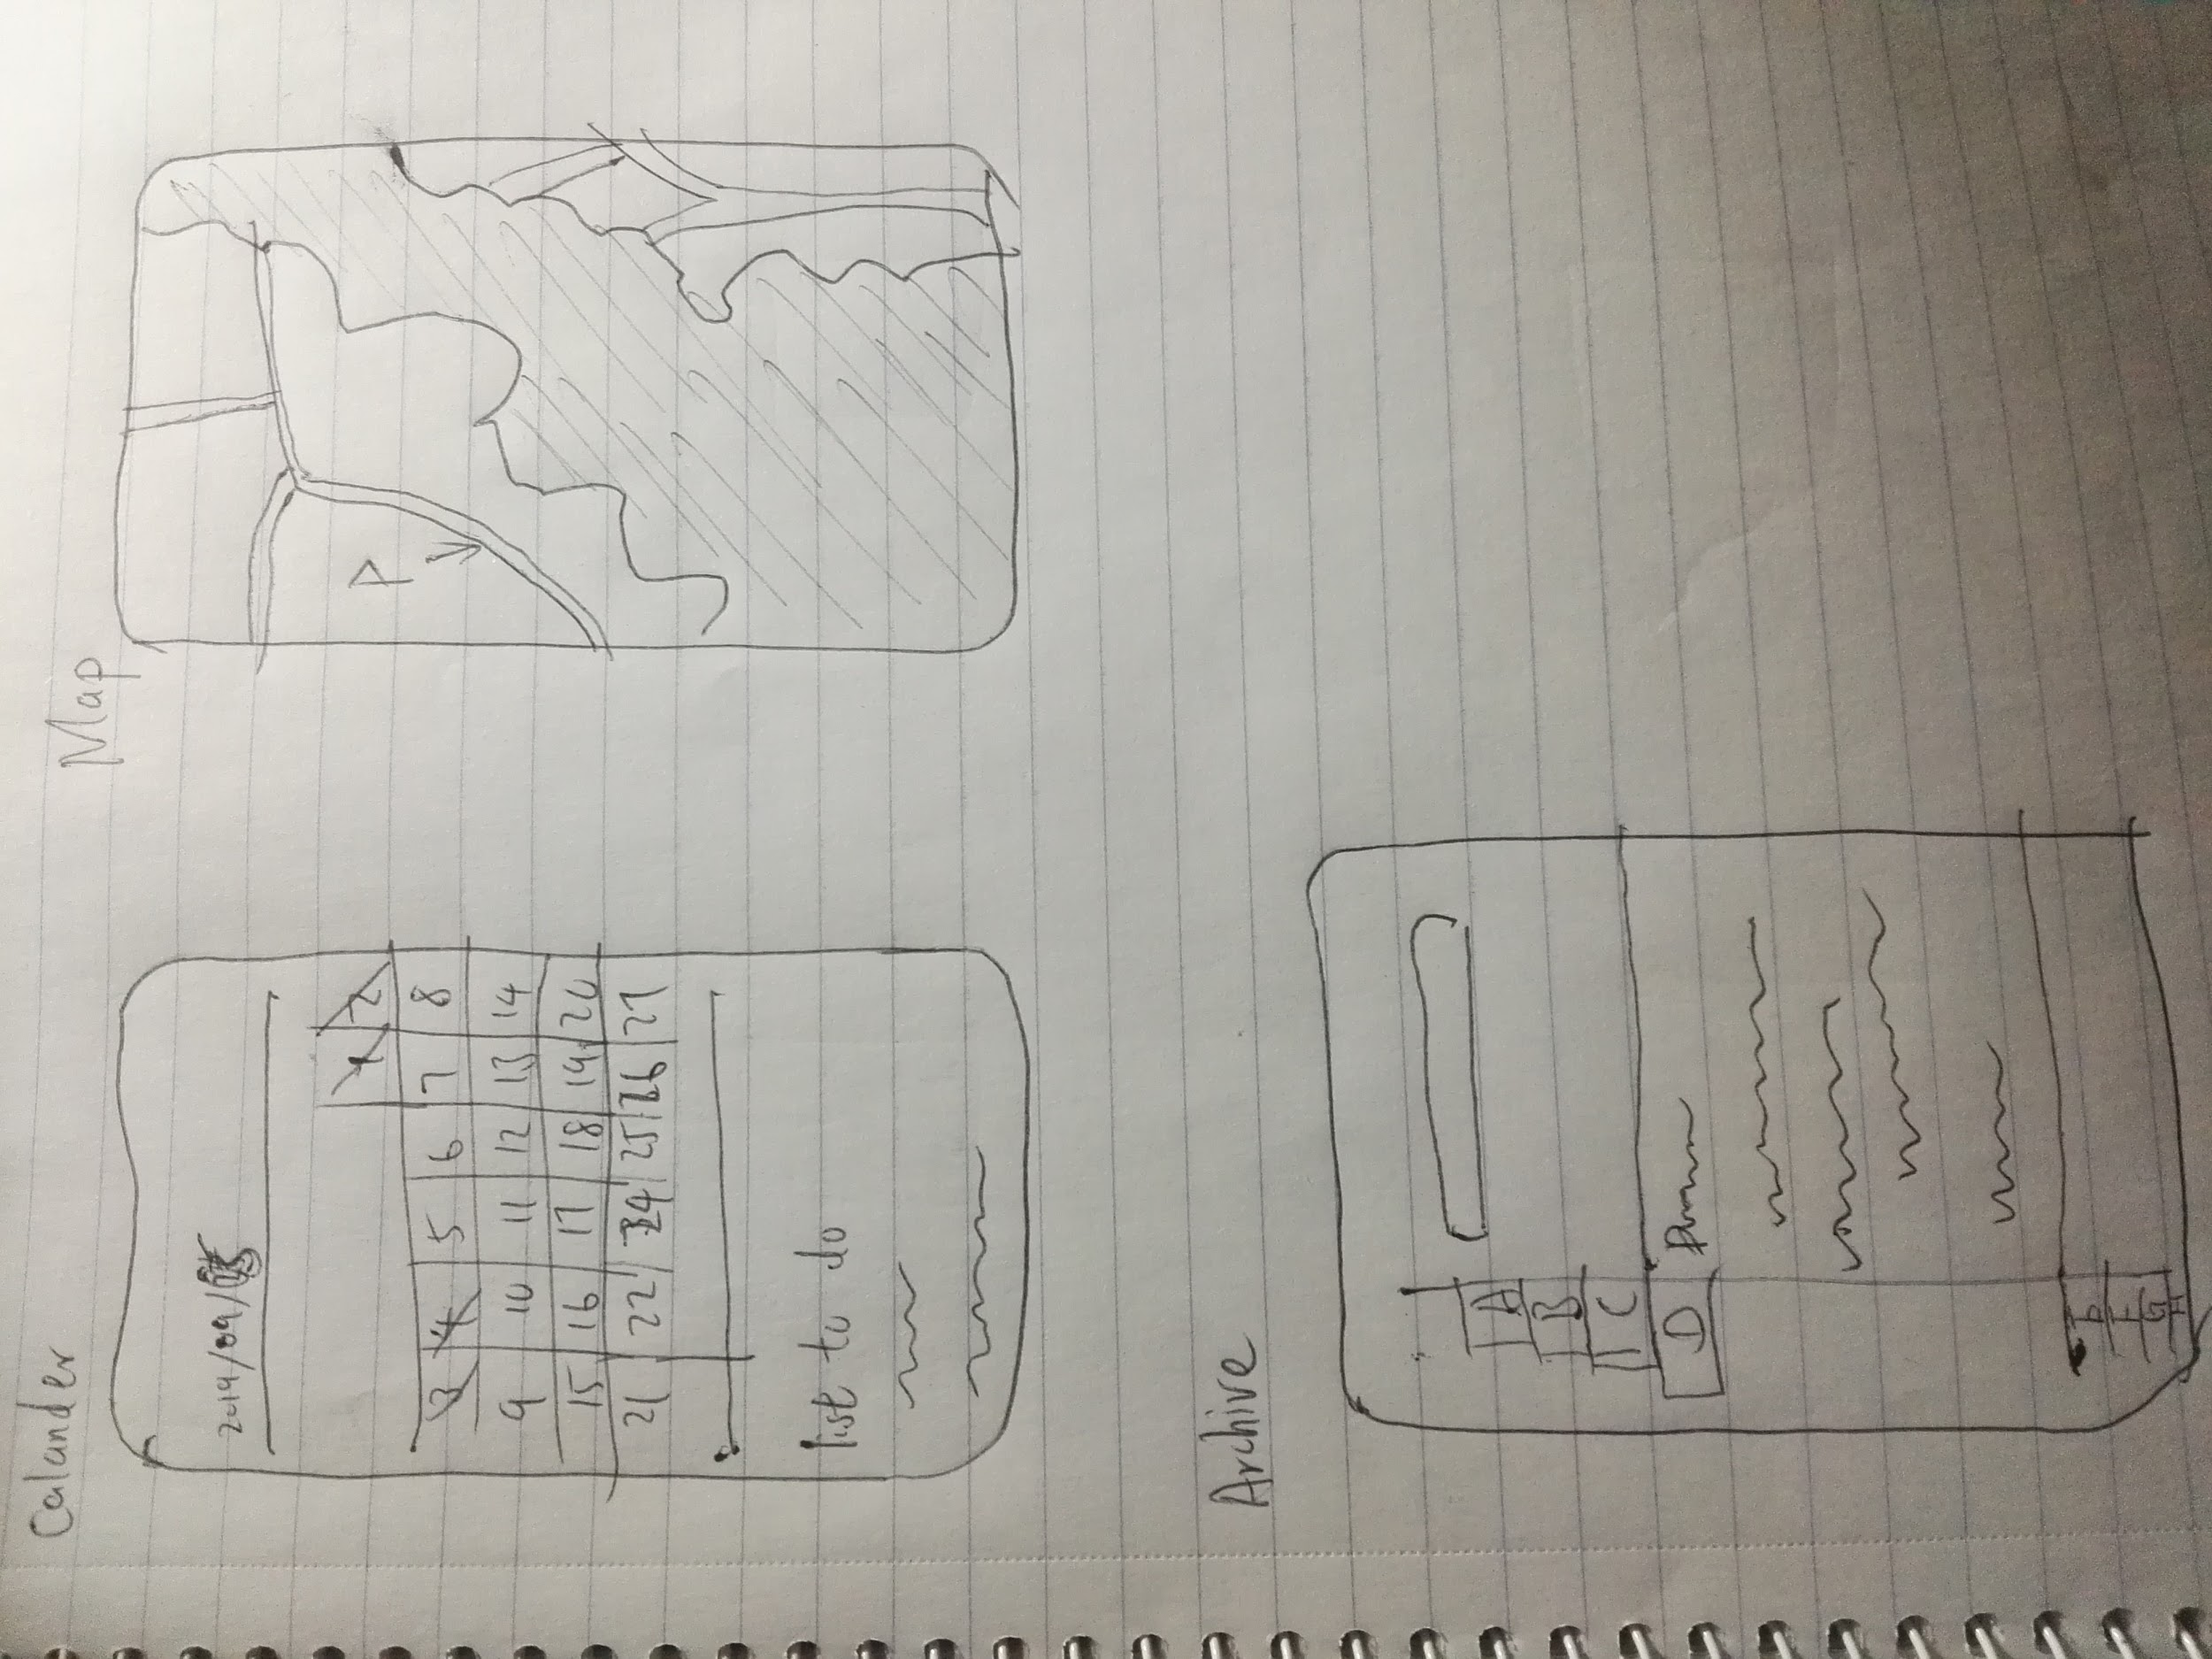 Calander
2019/09/05
1 2
3 4 5 6 7 8
9 10 11 12 13 14
15 16 17 18 19 20
21 22 24 25 26 27
list to do
Map
P
Archive
A
B
C
D
E
F
G
H